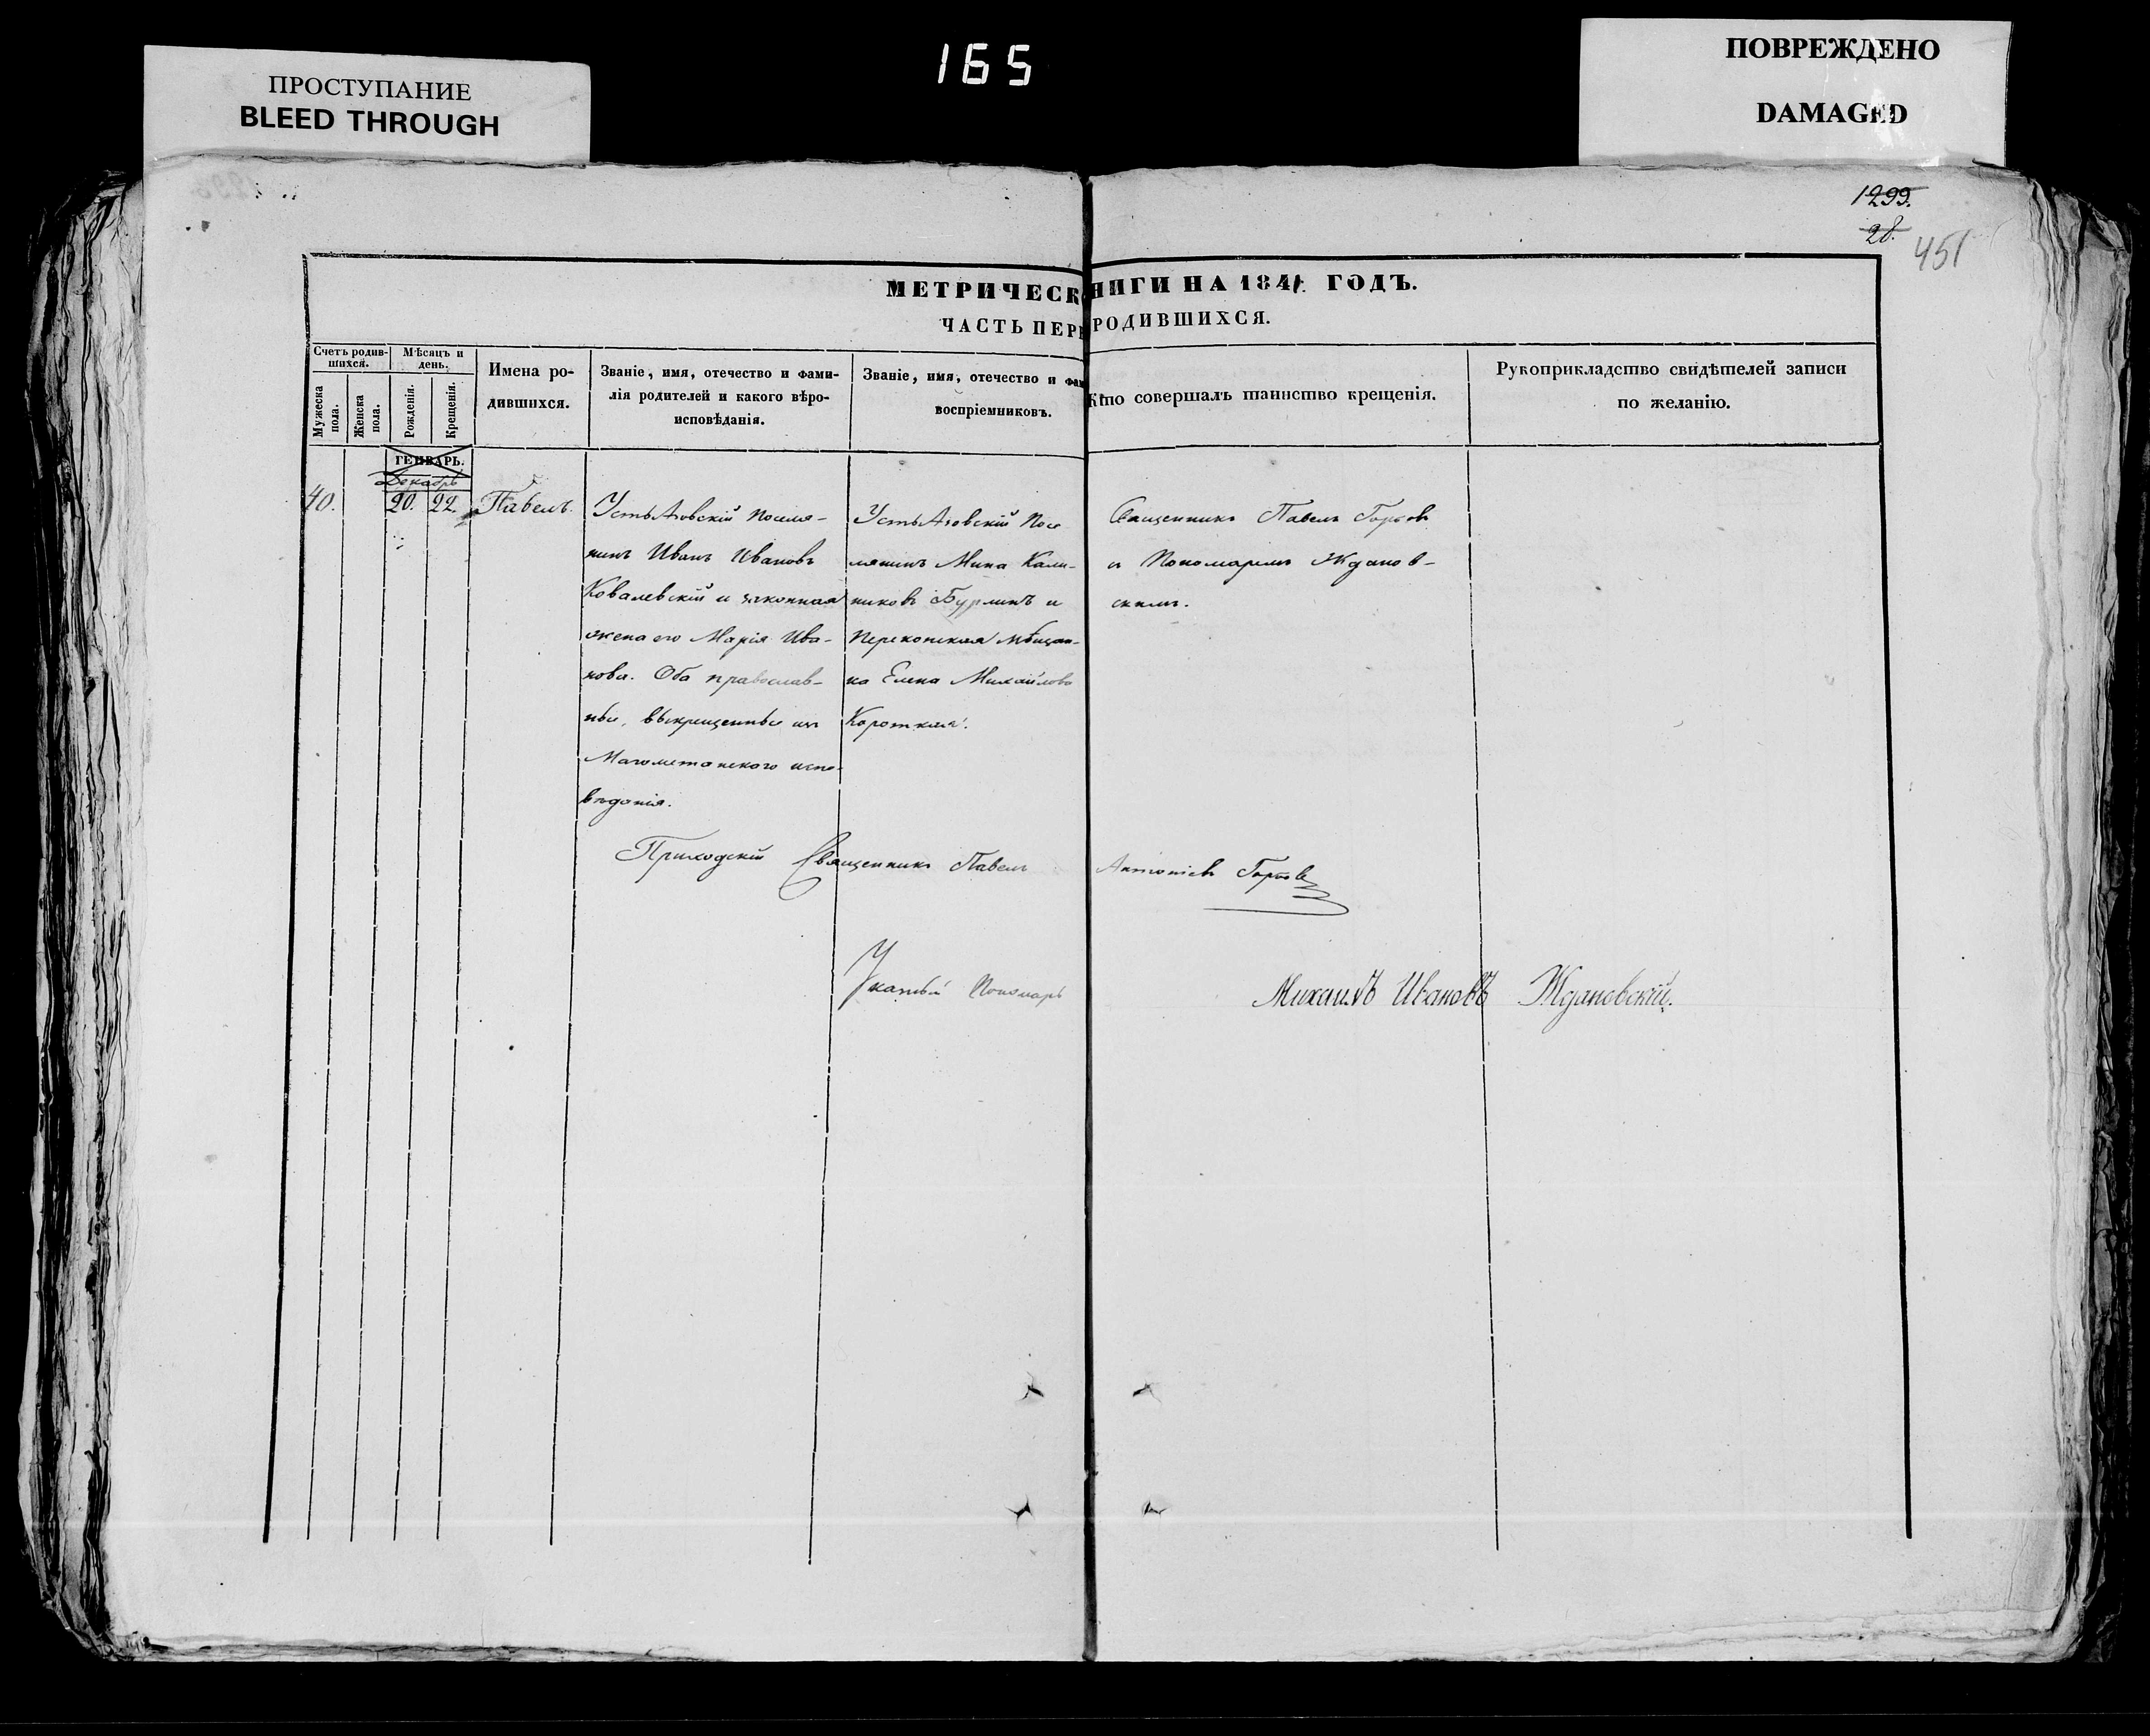 165
ПРОСТУПАНИЕ
BLEED THROUGH
ПОВРЕЖДЕНО
DAMAGED
1299.
28.
451
МЕТРИЧЕСК НИГИ НА 1841 ГОДЪ.
ЧАСТЬ ПЕР РОДИВШИХСЯ.
Счетъ родив-
шихся.
Мѣсяцъ и
день.
Мужеска
пола.
Женска
пола.
Рожденія.
Крещенія.
Имена ро-
дившихся.
Званіе, имя, отечество и фами-
лія родителей и какого вѣро-
исповѣданія.
Званіе, имя, отечество и фам
воспріемниковъ.
Кто совершалъ таинство крещенія.
Рукоприкладство свидѣтелей записи
по желанію.
ГЕНВАРЬ.
Декабрь
40.
20.
22.
Павелъ.
УстьАзовскій поселя-
нинъ Иванъ Ивановъ
Ковалевскій и законная
жена его Марія Ива-
нова. Оба православ-
ные, выкрещенные изъ
Магометанскаго испо-
вѣданія.
УстьАзовскій Посе
лянинъ Мина Кали-
никовъ Бурлинъ и
Перекопская мѣщан-
ка Елена Михайлова
Короткая.
Священникъ Павелъ
и Пономаремъ Жданов-
скимъ.
Приходскій Священникъ Павелъ Антоніевъ
Указный Пономарь Михаилъ Ивановъ Ждановскій.